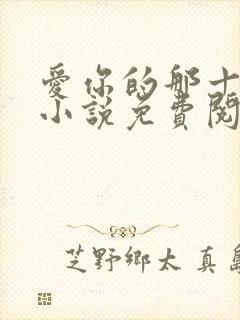 愛你的那十
小說免費閱
芝野鄉太真